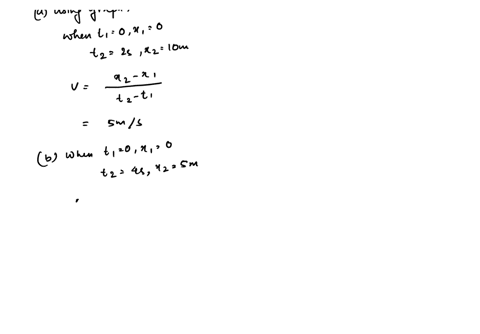 (a) Using graph:
when t₁=0, x₁=0
t₂= 2s, x₂=10m
V= x₂-x₁ / t₂-t₁
= 5m/s
(b) When t₁=0, x₁=0
t₂= 4s, x₂=5m